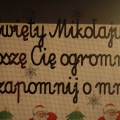 więty Mikołaju
oszę Cię ogromn
zapomnij o mn